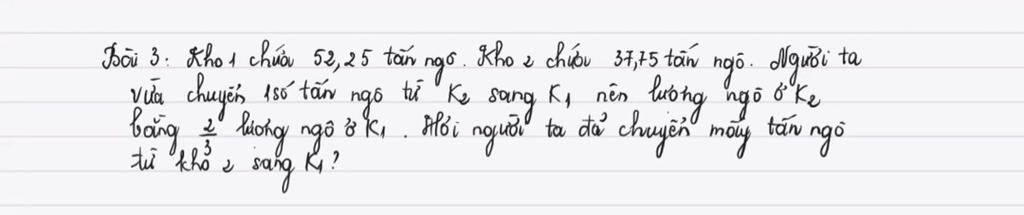 Bài 3: Kho 1 chứa 52,25 tấn ngô. Kho 2 chứa 37,75 tấn ngô. Người ta
vừa chuyển 1 số tấn ngô từ K2 sang K1 nên lượng ngô ở K2
bằng 2/3 lượng ngô ở K1. Hỏi người ta đã chuyển mấy tấn ngô
từ kho 2 sang K1?